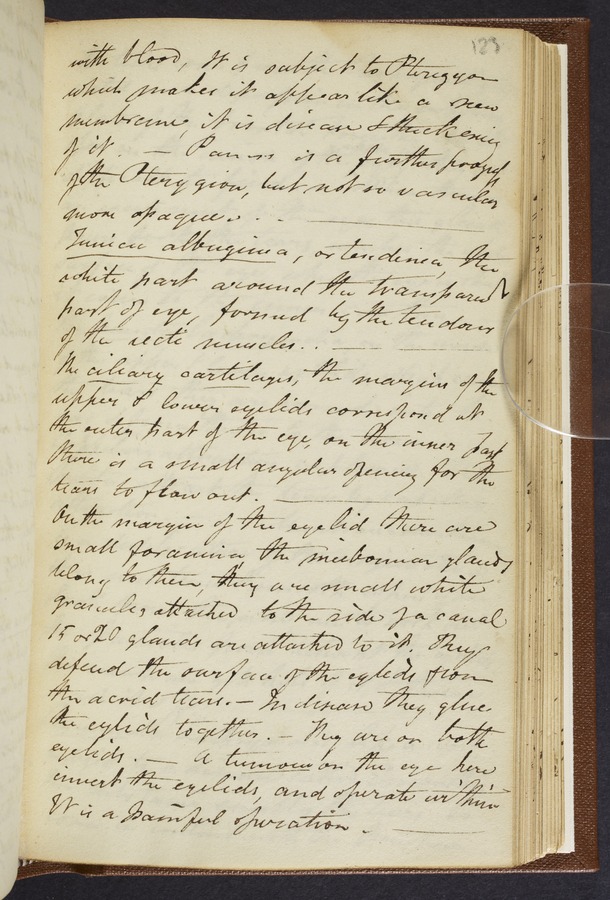 123
with blood, It is subject to Pterygion
which makes it appear like a new
membrane, it is disease & thickening
of it. — Pannus is a further progress
of the Pterygion, but not so vascular
more opaque. . . —
Tunica albuginea, or tendinea, the
white part around the transparent
part of eye, formed by the tendons
of the recti muscles. . —
The ciliary cartilages, the margins of the
upper & lower eyelids correspond at
the outer part of the eye, on the inner part
there is a small angular opening for the
tears to flow out. —
On the margin of the eyelid there are
small foramina, the meibomian glands
belong to them, they are small white
granules attached to the side of a canal
15 or 20 glands are attached to it. They
defend the surface of the eyelids from
the acrid tears. — In disease they glue
the eylids together. — They are on both
eyelids. — A tumour on the eye here
invert the eyelids, and operate within
It is a painful operation. —